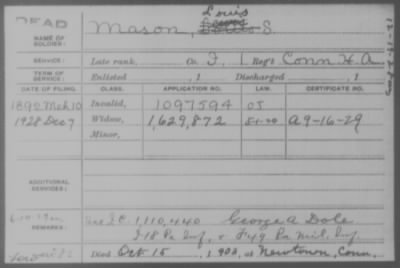 DEAD
Louis
Mason, S.
NAME OF SOLDIER:
SERVICE: Late rank, Co. I, 1 Reg't Conn H. A.
TERM OF SERVICE: Enlisted , 1 Discharged , 1
DATE OF FILING. CLASS. APPLICATION NO. LAW. CERTIFICATE NO.
1892 Mch 10 Invalid, 1097594 05
1928 Dec 7 Widow, 1,629,872 5-1-20 A9-16-29
Minor,
ADDITIONAL SERVICES:
REMARKS: 1,110,440 George A Dole
I-18 Pa Inf, & F49 Pa Mil. Inf.
Died Oct 15, 1902, at Newtown, Conn.